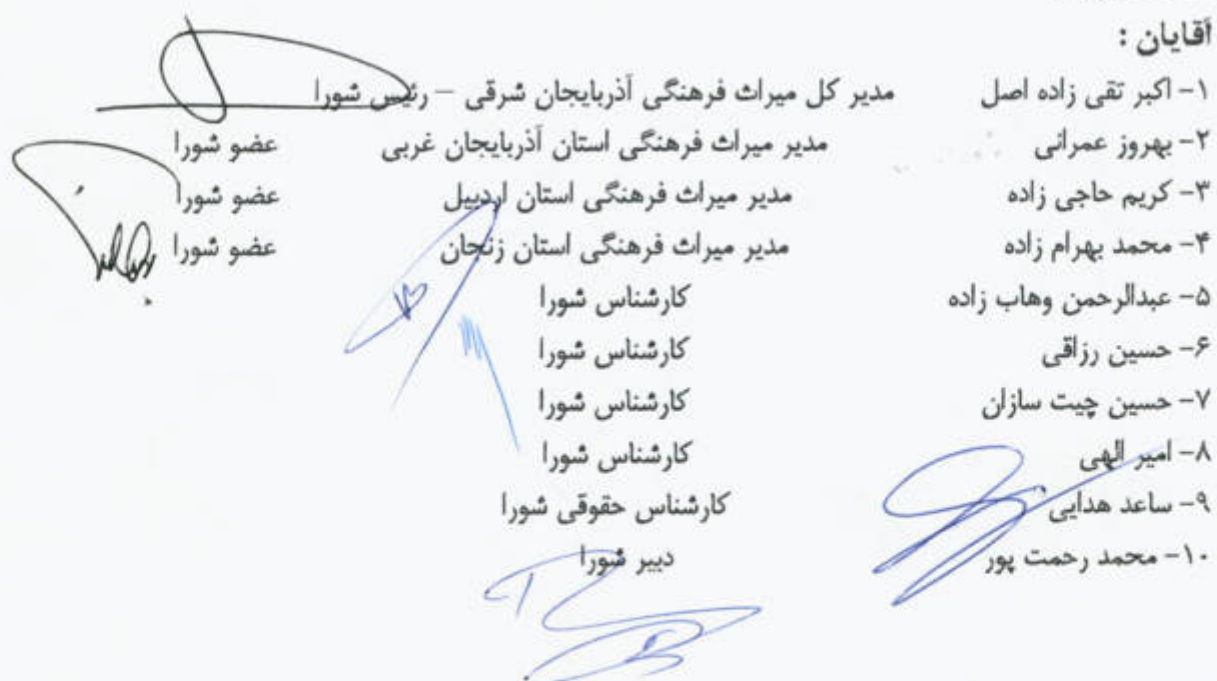 آقایان :
۱- اکبر تقی زاده اصل مدیر کل میراث فرهنگی آذربایجان شرقی – رئیس شورا
۲- بهروز عمرانی مدیر میراث فرهنگی استان آذربایجان غربی عضو شورا
۳- کریم حاجی زاده مدیر میراث فرهنگی استان اردبیل عضو شورا
۴- محمد بهرام زاده مدیر میراث فرهنگی استان زنجان عضو شورا
۵- عبدالرحمن وهاب زاده کارشناس شورا
۶- حسین رزاقی کارشناس شورا
۷- حسین چیت سازان کارشناس شورا
۸- امیر الهی کارشناس شورا
۹- ساعد هدایی کارشناس حقوقی شورا
۱۰- محمد رحمت پور دبیر شورا